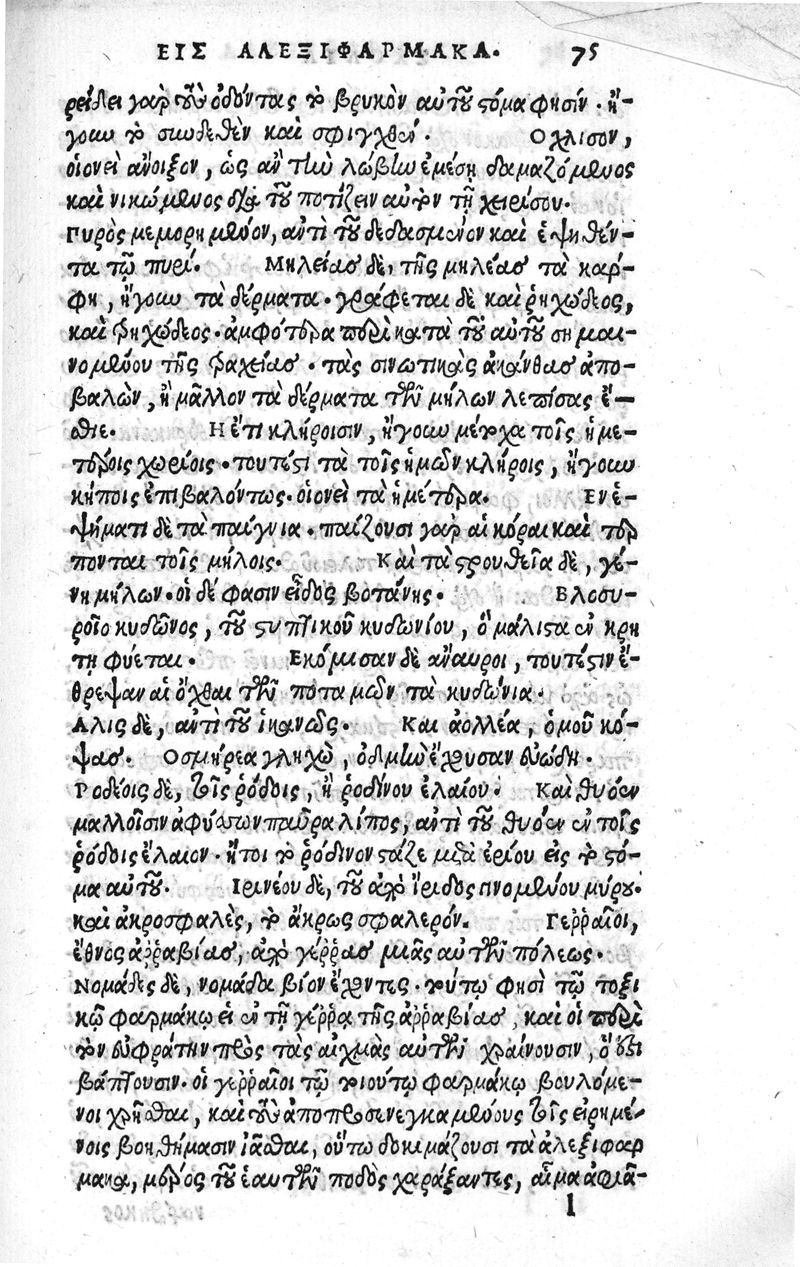 ΕΙΣ ΑΛΕΞΙΦΑΡΜΑΚΑ. 75
ρείδει γὰρ τοὺς ὀδόντας τὸ βρυκὸν αὐτοῦ στόμα φησίν· ἤ-
γουν τὸ συνδεθὲν καὶ σφιγχθέν. Οχλισον,
οἱονεὶ ἄνοιξον, ὡς ἂν τὴν λώβην ἐμέσῃ δαμαζόμενος
καὶ νικώμενος διὰ τοῦ ποτίζειν αὐτὸν τῇ χειρί σου.
Γυρὸς μεμορημένον, ἀντὶ τοῦ δεδασμένον καὶ ἑψηθέν-
τα τῷ πυρί. Μηλείας δὲ, τῆς μηλέας τὰ κάρ-
φη, ἤγουν τὰ δέρματα. γράφεται δὲ καὶ ῥηχώδεος,
καὶ ῥηχώδεος. ἀμφότερα περὶ κατὰ τοῦ αὐτοῦ σημαι-
νομένου τῆς ῥαχείας. τὰς σινωτικὰς ἀκάνθας ἀπο-
βαλὼν, ἢ μᾶλλον τὰ δέρματα τῶν μήλων λεπίσας ἔ-
σθιε. Η ἔτι κλήροισιν, ἤγουν μέρχα τοῖς ἡμε-
τέροις χωρίοις. τουτέστι τὰ τοῖς ἡμῶν κλήροις, ἤγουν
κήποις ἐπιβαλόντως. οἱονεὶ τὰ ἡμέτερα. Ενε-
ψήματι δὲ τὰ παίγνια. παίζουσι γὰρ αἱ κόραι καὶ τέρ
πονται τοῖς μήλοις. Καὶ τὰ στρουθεῖα δὲ, γέ-
νη μήλων. οἱ δέ φασιν εἶδος βοτάνης. Βλοσυ-
ροῖο κυδῶνος, τοῦ στυπτικοῦ κυδωνίου, ὃ μάλιστα ἐν κρη
τῃ φύεται. Εκόμισαν δὲ ἄναυροι, τουτέστιν ἔ-
θρεψαν αἱ ὄχθαι τῶν ποταμῶν τὰ κυδώνια.
Αλις δὲ, ἀντὶ τοῦ ἱκανῶς. Και ἀολλέα, ὁμοῦ κό-
ψας. Οσμήρεα γληχὼ, ὀδμὴν ἔχουσαν εὐώδη.
Ροδέοις δὲ, τοῖς ῥόδοις, ἢ ῥοδίνου ἐλαίου. Καὶ θυόεν
μαλλοῖσιν ἀφύσσων παῦρα λίπος, ἀντὶ τοῦ θυόεν ἐν τοῖς
ῥόδοις ἔλαιον. ἤτοι τὸ ῥόδινον στάζε μετὰ ἐρίου εἰς τὸ στό-
μα αὐτοῦ. Ιρινέου δὲ, τοῦ ἀπὸ ἴριδος γινομένου μύρου.
καὶ ἀκροσφαλὲς, τὸ ἄκρως σφαλερόν. Γεῤῥαῖοι,
ἔθνος ἀῤῥαβίας, ἀπὸ γέῤῥας μιᾶς αὐτῶν πόλεως.
Νομάδες δὲ, νομάδα βίον ἔχοντες. τούτῳ φησὶ τῷ τοξι
κῷ φαρμάκῳ εἰ ἐν τῇ γέῤῥᾳ τῆς ἀῤῥαβίας, καὶ οἱ περὶ
τὸν εὐφράτην πρὸς τὰς αἰχμὰς αὐτῶν χραίνουσιν, ὅ ἐστι
βάπτουσιν. οἱ γεῤῥαῖοι τῷ τοιούτῳ φαρμάκῳ βουλόμε-
νοι χρῆσθαι, καὶ τοὺς ἀποπροσενεγκαμένους τοῖς εἰρημέ-
νοις βοηθήμασιν ἰᾶσθαι, οὕτω δοκιμάζουσι τὰ ἀλεξιφαρ
μακα, μέρος τοῦ ἑαυτῶν ποδὸς χαράξαντες, αἷμα ἀφιᾶ-
l